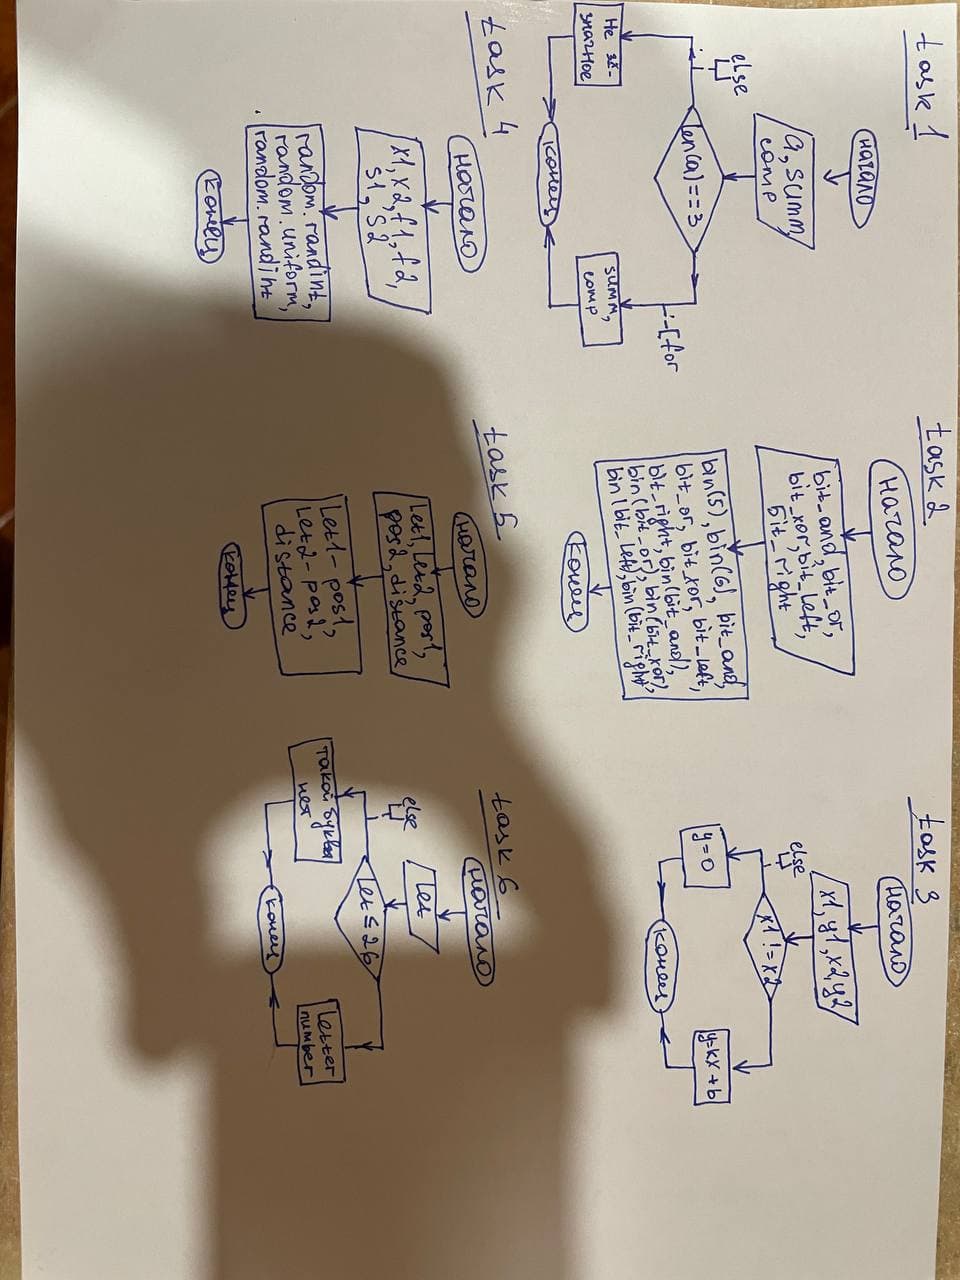 task 1
начало
a, summ,
comp
else
len(a)==3
-[for
Не 3х-
значное
summ,
comp
конец
task 2
начало
bit_and, bit_or,
bit_xor, bit_left,
bit_right
bin(5), bin(6), bit_and,
bit_or, bit_xor, bit_left,
bit_right, bin(bit_and),
bin(bit_or), bin(bit_xor),
bin(bit_left), bin(bit_right)
конец
task 3
начало
x1, y1, x2, y2
else
x1 != x2
y=0
y=kx+b
конец
task 4
начало
x1, x2, f1, f2,
s1, s2
random.randint,
random.uniform,
random.randint
конец
task 5
начало
let1, let2, pos1,
pos2, distance
let1- pos1,
let2- pos2,
distance
конец
task 6
начало
let
else
let ≤ 26
такой буквы
нет
letter
number
конец